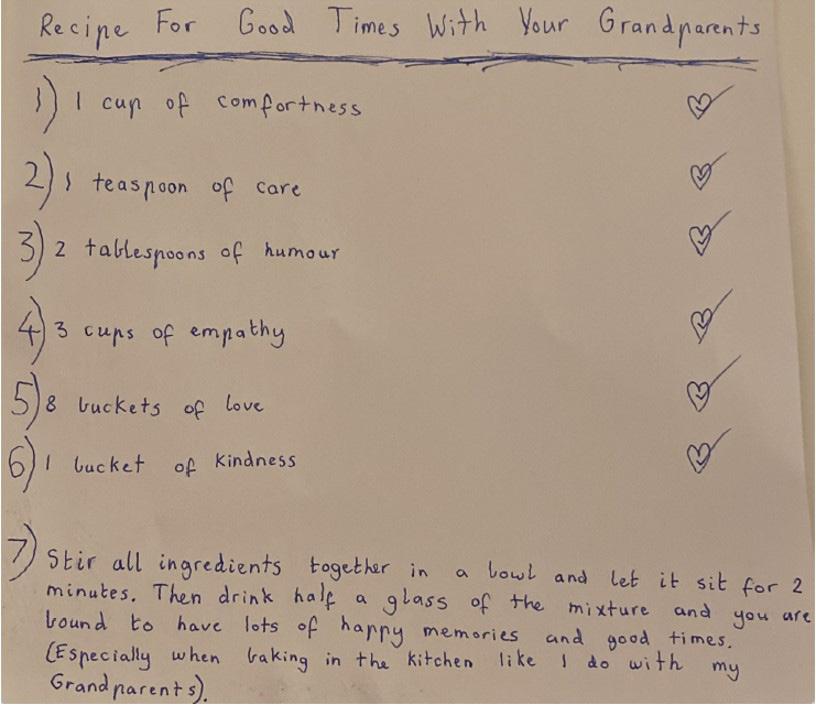 Recipe For Good Times With Your Grandparents
1) 1 cup of comfortness
2) 1 teaspoon of care
3) 2 tablespoons of humour
4) 3 cups of empathy
5) 8 buckets of love
6) 1 bucket of kindness
7) Stir all ingredients together in a bowl and let it sit for 2
minutes. Then drink half a glass of the mixture and you are
bound to have lots of happy memories and good times.
(Especially when baking in the kitchen like I do with my
Grandparents).